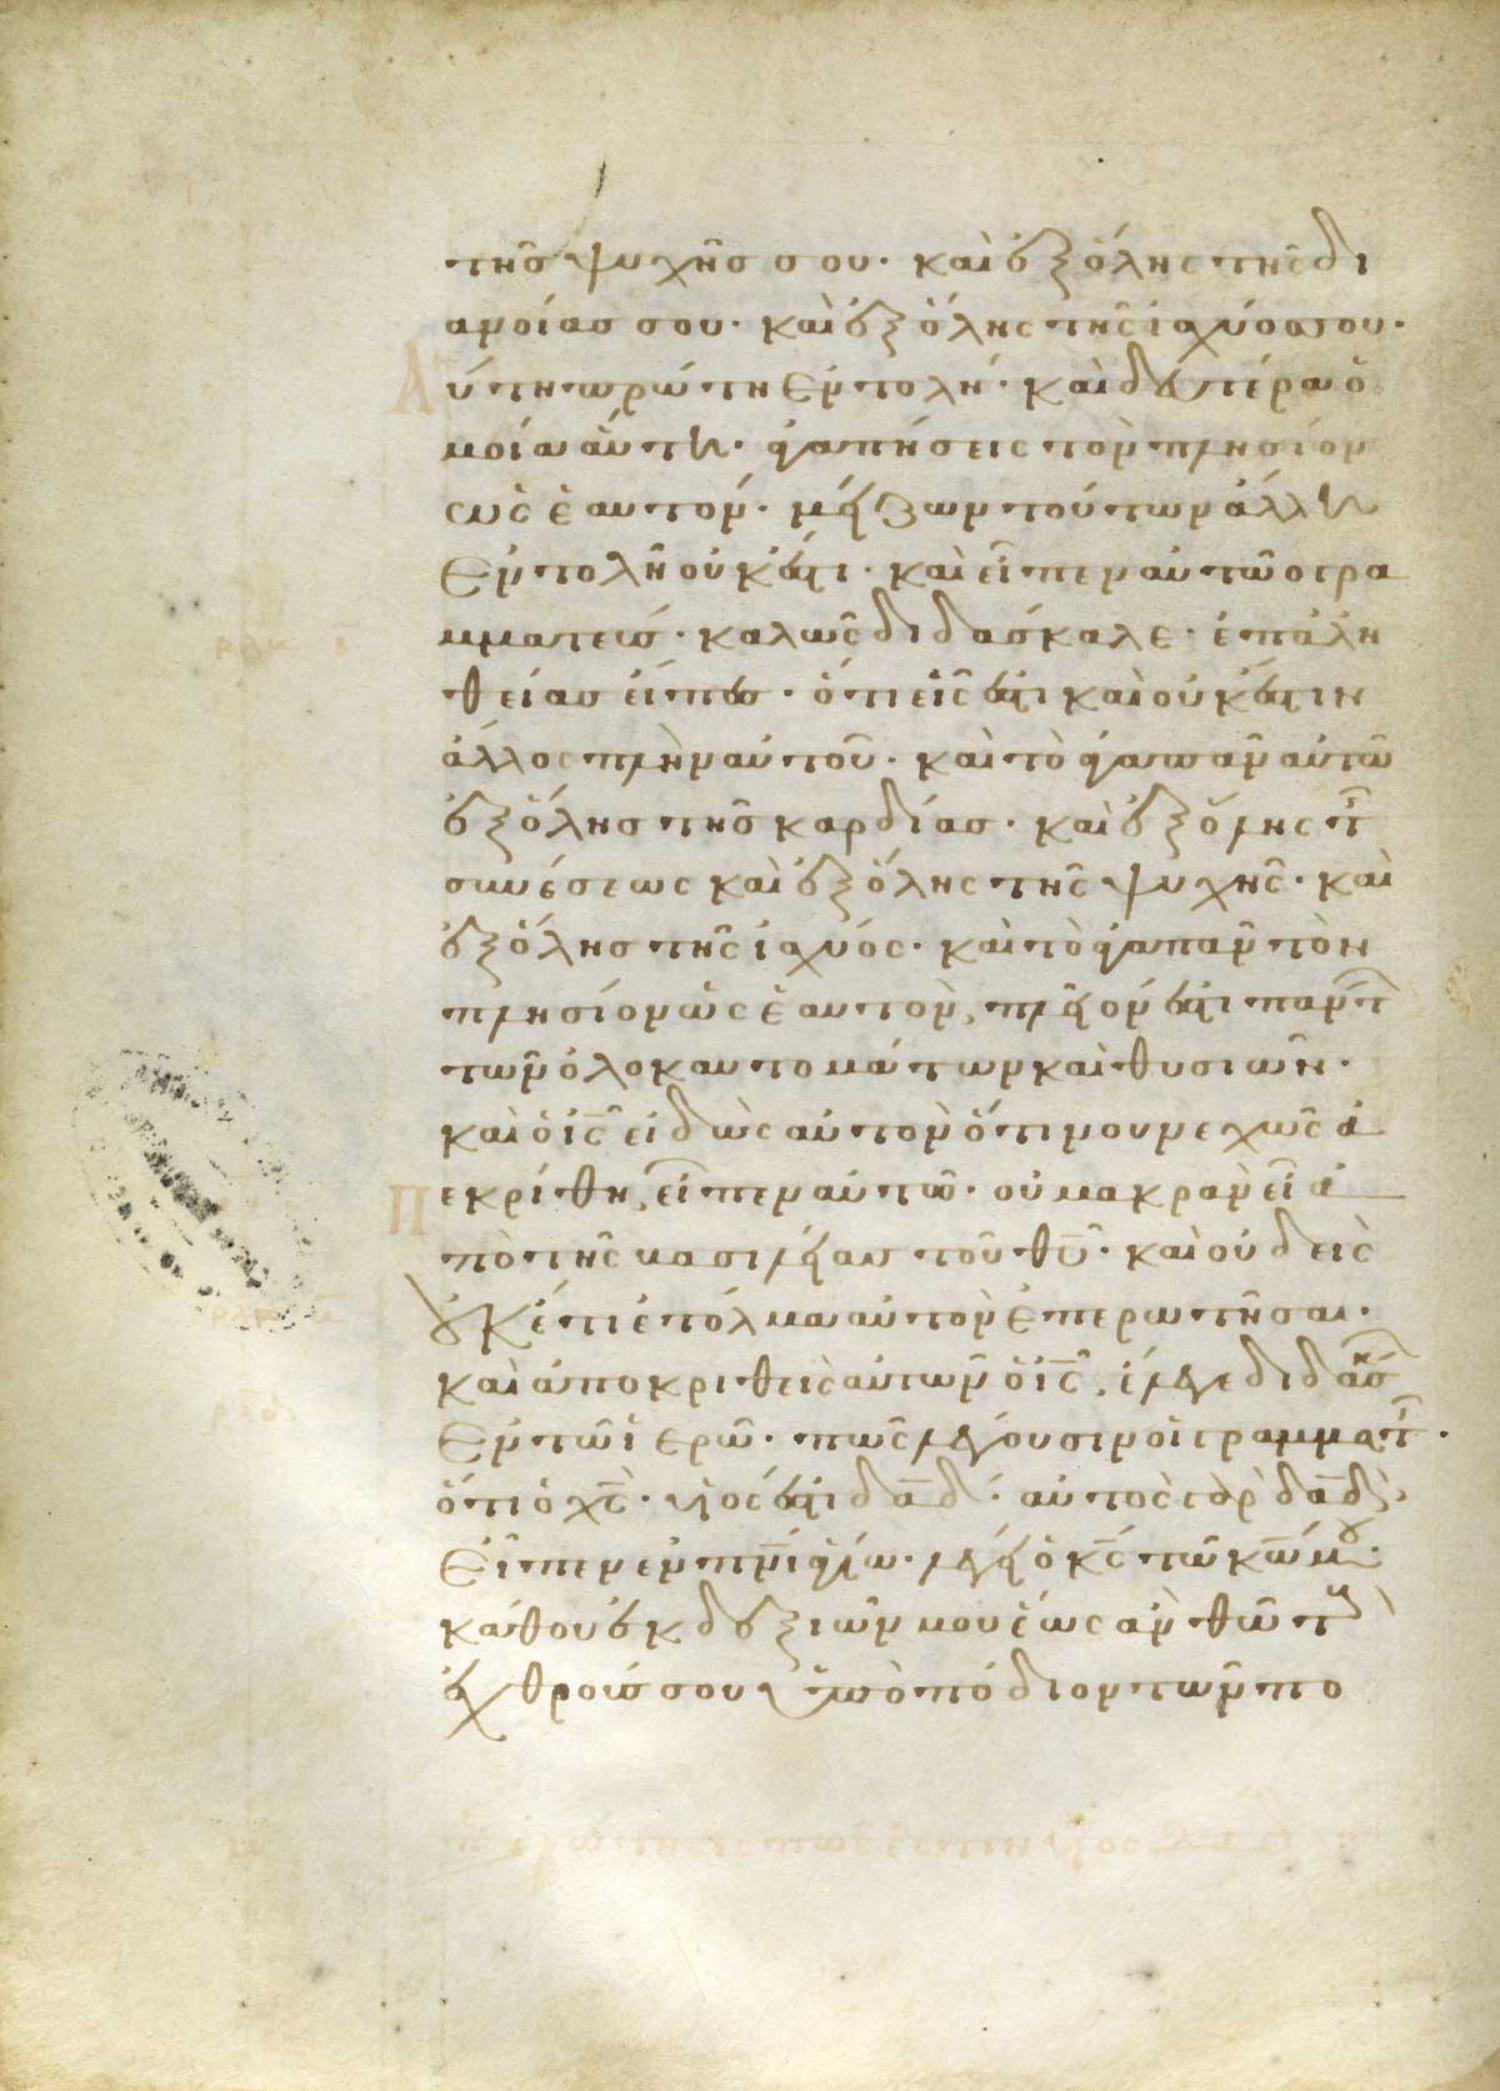 της ψυχῆς σου· καὶ ἐξ ὅλης τῆς δι
ανοίας σου· καὶ ἐξ ὅλης τῆς ἰσχύος σου·
ύτη πρώτη ἐντολή· καὶ δευτέρα ὁ
μοία αὐτῆ· ἀγαπήσεις τὸν πλησίον
ὡς ἑαυτόν· μείζων τούτων ἄλλη
ἐντολὴ οὐκ ἔστι· καὶ εἶπεν αὐτῶ ο γρα
μματεύς· καλῶς διδάσκαλε· ἐπ ἀλη
θείας εἶπας· ὅτι εἷς ἐστι καὶ οὐκ ἔστιν
ἄλλος πλὴν αὐτοῦ· καὶ τὸ ἀγαπᾶν αὐτῶ
ἐξ ὅλης τῆς καρδίας· καὶ ἐξ ὅλης τ
συνέσεως καὶ ἐξ ὅλης τῆς ψυχῆς· καὶ
ἐξ ὅλης τῆς ἰσχύος· καὶ τὸ ἀγαπᾶν τὸν
πλησίον ὡς ἑαυτὸν, πλεῖόν ἐστι πάντ
τῶν ὁλοκαυτομάτων καὶ θυσιῶν·
καὶ ὁ ις εἰδὼς αὐτὸν ὅτι νουνεχῶς ἀ
εκρίθη, εἶπεν αὐτῶ· οὐ μακρὰν εἶ ἀ
πὸ τῆς βασιλείας τοῦ θυ· καὶ οὐδεὶς
οὐκέτι ἐτόλμα αὐτὸν ἐπερωτῆσαι·
καὶ ἀποκριθεὶς αὐτῶν ὁ ις, ἔλεγε διδάσκ
ἐν τῶ ἱερῶ· πῶς λέγουσιν οἱ γραμματ·
ὅτι ὁ χς· υἱός ἐστι δαδ· αὐτὸς γὰρ δαδ,
εἶπεν ἐν πνι ἁγίω· λέγει ὁ κς τῶ κω μου·
κάθου ἐκ δεξιῶν μου ἕως ἂν θῶ τ
ἐχθρούς σου ὑποπόδιον τῶν πο